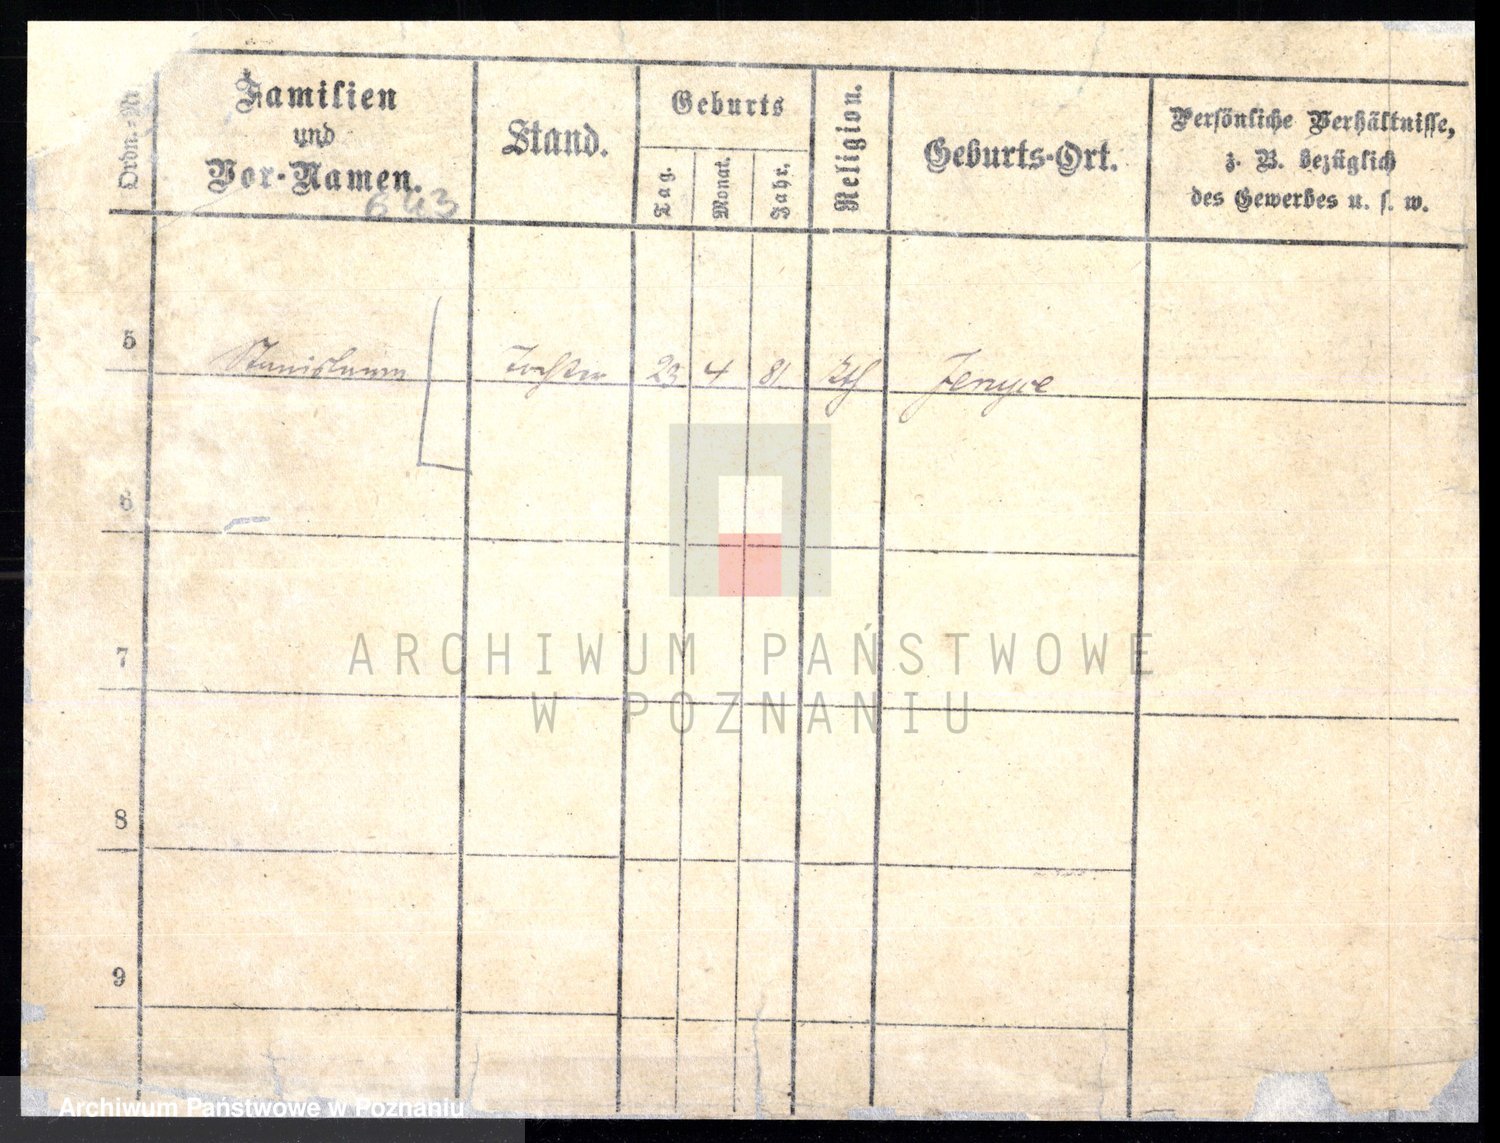 Ordn.-Nr
Familien
und
Vor-Namen.
643
Stand.
Geburts
Tag.
Monat.
Jahr.
Religion.
Geburts-Ort.
Persönliche Verhältnisse,
z. B. bezüglich
des Gewerbes u. s. w.
5 Stanislawa Tochter 23 4 81 kth Jerzyce
6
7
8
9
ARCHIWUM PAŃSTWOWE
W POZNANIU
Archiwum Państwowe w Poznaniu